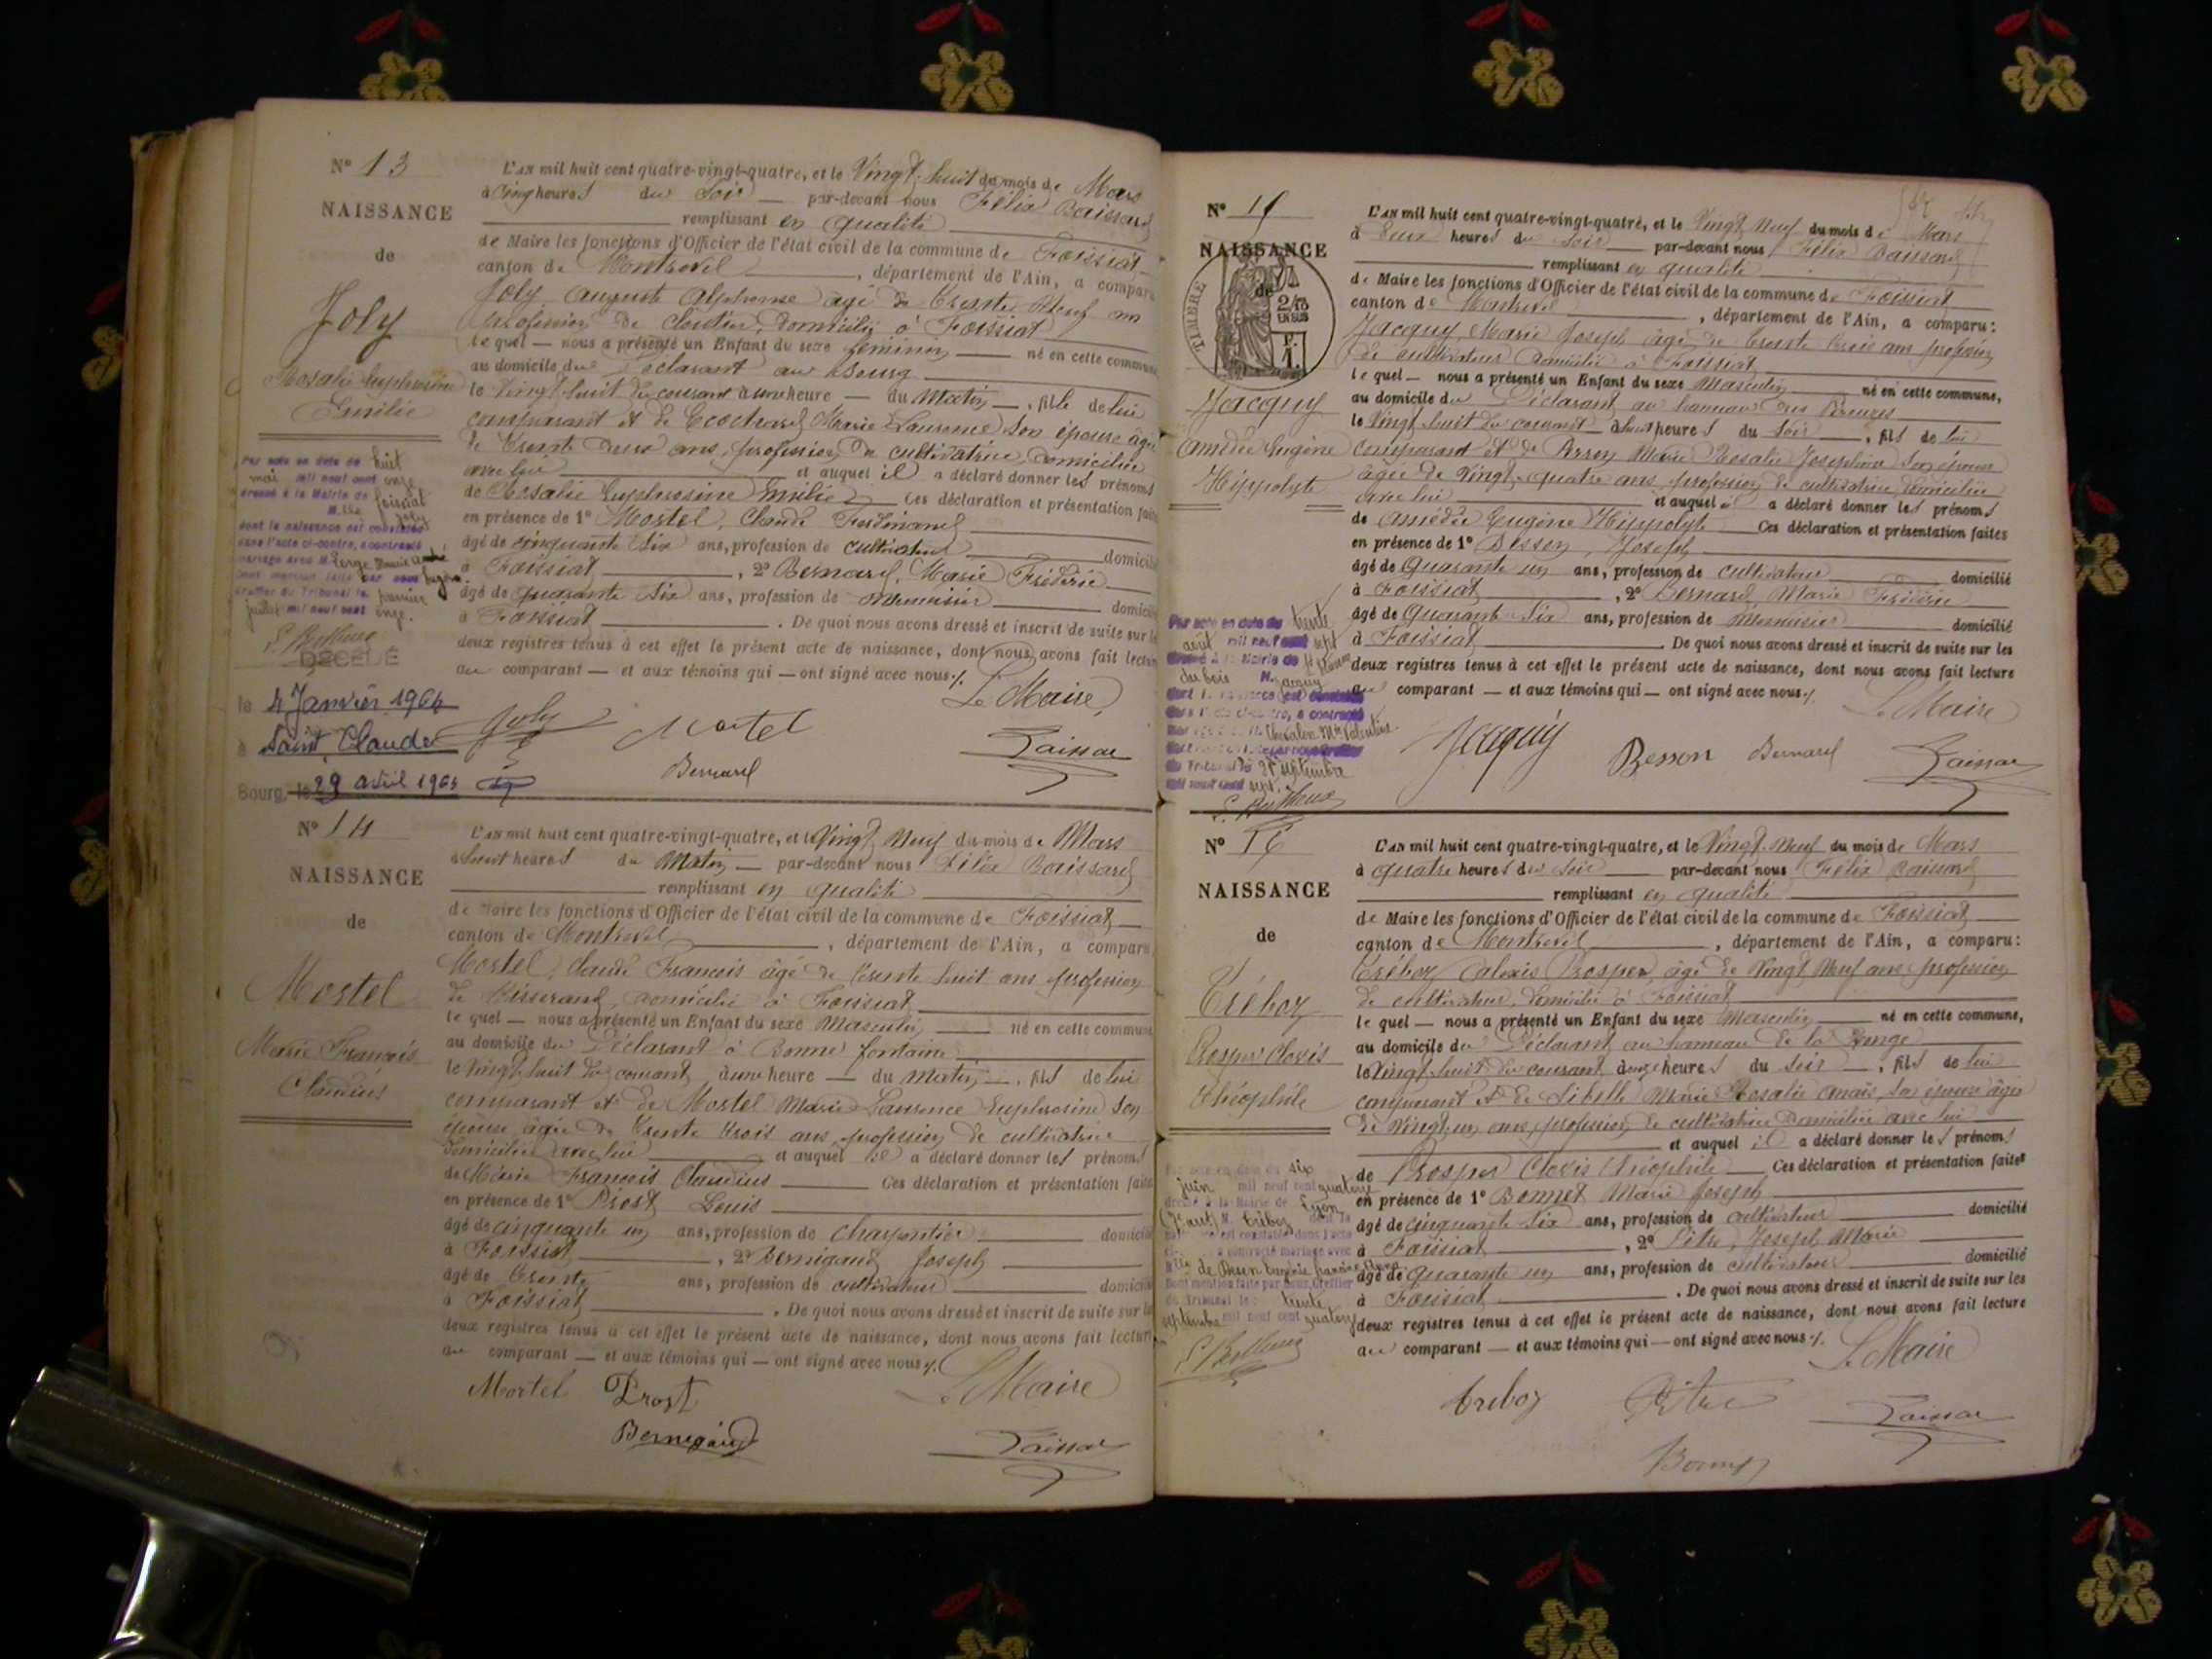 N° 13
NAISSANCE
de
Joly
Rosalie Euphrosine
Emilie
L'AN mil huit cent quatre-vingt-quatre, et le Vingt huit du mois de Mars
à Cinq heures du Soir par-devant nous Félix Baissard
remplissant en qualité
de Maire les fonctions d'Officier de l'état civil de la commune de Foissiat
canton de Montrevel, département de l'Ain, a comparu
Joly Auguste Alphonse âgé de trente Neuf ans
profession de cloutier, domicilié à Foissiat
le quel — nous a présenté un Enfant du sexe féminin — né en cette commune
au domicile du Déclarant au Bourg
le Vingt huit du courant à une heure — du Matin —, fille de lui
comparant et de Cochard Marie Laurence son épouse âgée
de trente deux ans, profession de cultivatrice domiciliée
avec lui et auquel il a déclaré donner les prénoms
de Rosalie Euphrosine Emilie Ces déclaration et présentation faites
en présence de 1° Mortel, Claude Ferdinand
âgé de cinquante six ans, profession de cultivateur domicilié
à Foissiat, 2° Bernard, Marie Frédéric
âgé de quarante six ans, profession de Menuisier domicilié
à Foissiat. De quoi nous avons dressé et inscrit de suite sur les
deux registres tenus à cet effet le présent acte de naissance, dont nous avons fait lecture
au comparant — et aux témoins qui — ont signé avec nous ./.
Le Maire,
Joly Mortel
Bernard
Par acte en date du huit
mai mil neuf cent onze
dressé à la Mairie de foissiat
Mlle Joly
dont la naissance est constatée
dans l'acte ci-contre, a contracté
mariage avec M.
Dont mention faite par nous
Greffier du Tribunal le premier
juillet mil neuf cent onze.
DÉCÉDÉ
le 4 Janvier 1964
à Saint Claude
Bourg, le 29 avril 1965
N° 14
NAISSANCE
de
Mortel
Marie François
Claudius
L'AN mil huit cent quatre-vingt-quatre, et le Vingt Neuf du mois de Mars
à huit heures du Matin — par-devant nous Félix Baissard
remplissant en qualité
de Maire les fonctions d'Officier de l'état civil de la commune de Foissiat
canton de Montrevel, département de l'Ain, a comparu
Mortel, Claude François âgé de trente huit ans profession
de Tisserand, domicilié à Foissiat
le quel — nous a présenté un Enfant du sexe Masculin — né en cette commune
au domicile du Déclarant à Bonne fontaine
le Vingt huit du courant, à une heure — du Matin —, fils de lui
comparant et de Mortel Marie Laurence Euphrosine son
épouse âgée de trente trois ans, profession de cultivatrice
domiciliée avec lui et auquel il a déclaré donner les prénoms
de Marie François Claudius Ces déclaration et présentation faites
en présence de 1° Prost Louis
âgé de cinquante un ans, profession de charpentier domicilié
à Foissiat, 2° Bernigaud Joseph
âgé de trente ans, profession de cultivateur domicilié
à Foissiat. De quoi nous avons dressé et inscrit de suite sur les
deux registres tenus à cet effet le présent acte de naissance, dont nous avons fait lecture
au comparant — et aux témoins qui — ont signé avec nous ./.
Le Maire
Mortel Prost
Bernigaud
N° 15
NAISSANCE
de
TIMBRE
Jacquy
Amédée Eugène
Hippolyte
L'AN mil huit cent quatre-vingt-quatre, et le Vingt Neuf du mois de Mars
à Deux heures du Soir — par-devant nous Félix Baissard
remplissant en qualité
de Maire les fonctions d'Officier de l'état civil de la commune de Foissiat
canton de Montrevel, département de l'Ain, a comparu :
Jacquy, Marie Joseph âgé de trente trois ans profession
de cultivateur domicilié à Foissiat
le quel — nous a présenté un Enfant du sexe Masculin né en cette commune,
au domicile du Déclarant au hameau des
le Vingt huit du courant à huit heures du Soir —, fils de lui
comparant et de Marie Rosalie Josephine son épouse
âgée de Vingt quatre ans, profession de cultivatrice domiciliée
avec lui et auquel il a déclaré donner les prénoms
de Amédée Eugène Hippolyte Ces déclaration et présentation faites
en présence de 1° Besson, Joseph
âgé de Quarante un ans, profession de cultivateur domicilié
à Foissiat, 2° Bernard Marie Frédéric
âgé de Quarante Six ans, profession de Menuisier domicilié
à Foissiat. De quoi nous avons dressé et inscrit de suite sur les
deux registres tenus à cet effet le présent acte de naissance, dont nous avons fait lecture
au comparant — et aux témoins qui — ont signé avec nous ./.
Le Maire
Jacquy Besson Bernard
Par acte en date du trente
août mil neuf cent sept
à la Mairie de
du bois M. Jacquy
a contracté
Chevalier Mie Valentine
21 septembre
mil neuf cent sept.
N° 16
NAISSANCE
de
Tréboz
Prosper Clovis
Théophile
L'AN mil huit cent quatre-vingt-quatre, et le Vingt Neuf du mois de Mars
à quatre heures du Soir par-devant nous Félix Baissard
remplissant en qualité
de Maire les fonctions d'Officier de l'état civil de la commune de Foissiat
canton de Montrevel, département de l'Ain, a comparu :
Tréboz Alexis Prosper, âgé de Vingt Neuf ans profession
de cultivateur, domicilié à Foissiat
le quel — nous a présenté un Enfant du sexe Masculin né en cette commune,
au domicile du Déclarant au hameau de la
le Vingt huit du courant, à onze heures du Soir —, fils de lui
comparant et de Sibelle Marie Rosalie Anaïs, son épouse âgée
de Vingt un ans, profession de cultivatrice domiciliée avec lui
et auquel il a déclaré donner les prénoms
de Prosper Clovis Théophile Ces déclaration et présentation faites
en présence de 1° Bonnet Marie Joseph
âgé de cinquante six ans, profession de cultivateur domicilié
à Foissiat, 2° Pitre, Joseph Marie
âgé de quarante un ans, profession de cultivateur domicilié
à Foissiat. De quoi nous avons dressé et inscrit de suite sur les
deux registres tenus à cet effet le présent acte de naissance, dont nous avons fait lecture
au comparant — et aux témoins qui — ont signé avec nous ./.
Le Maire
Treboz Pitre
Bonnet
Par acte en date du six
juin mil neuf cent quatorze
dressé à la Mairie de Lyon
M. Tréboz dont la
naissance est constatée dans l'acte
a contracté mariage avec
Mlle
Dont mention faite par nous, Greffier
du Tribunal le trente
septembre mil neuf cent quatorze